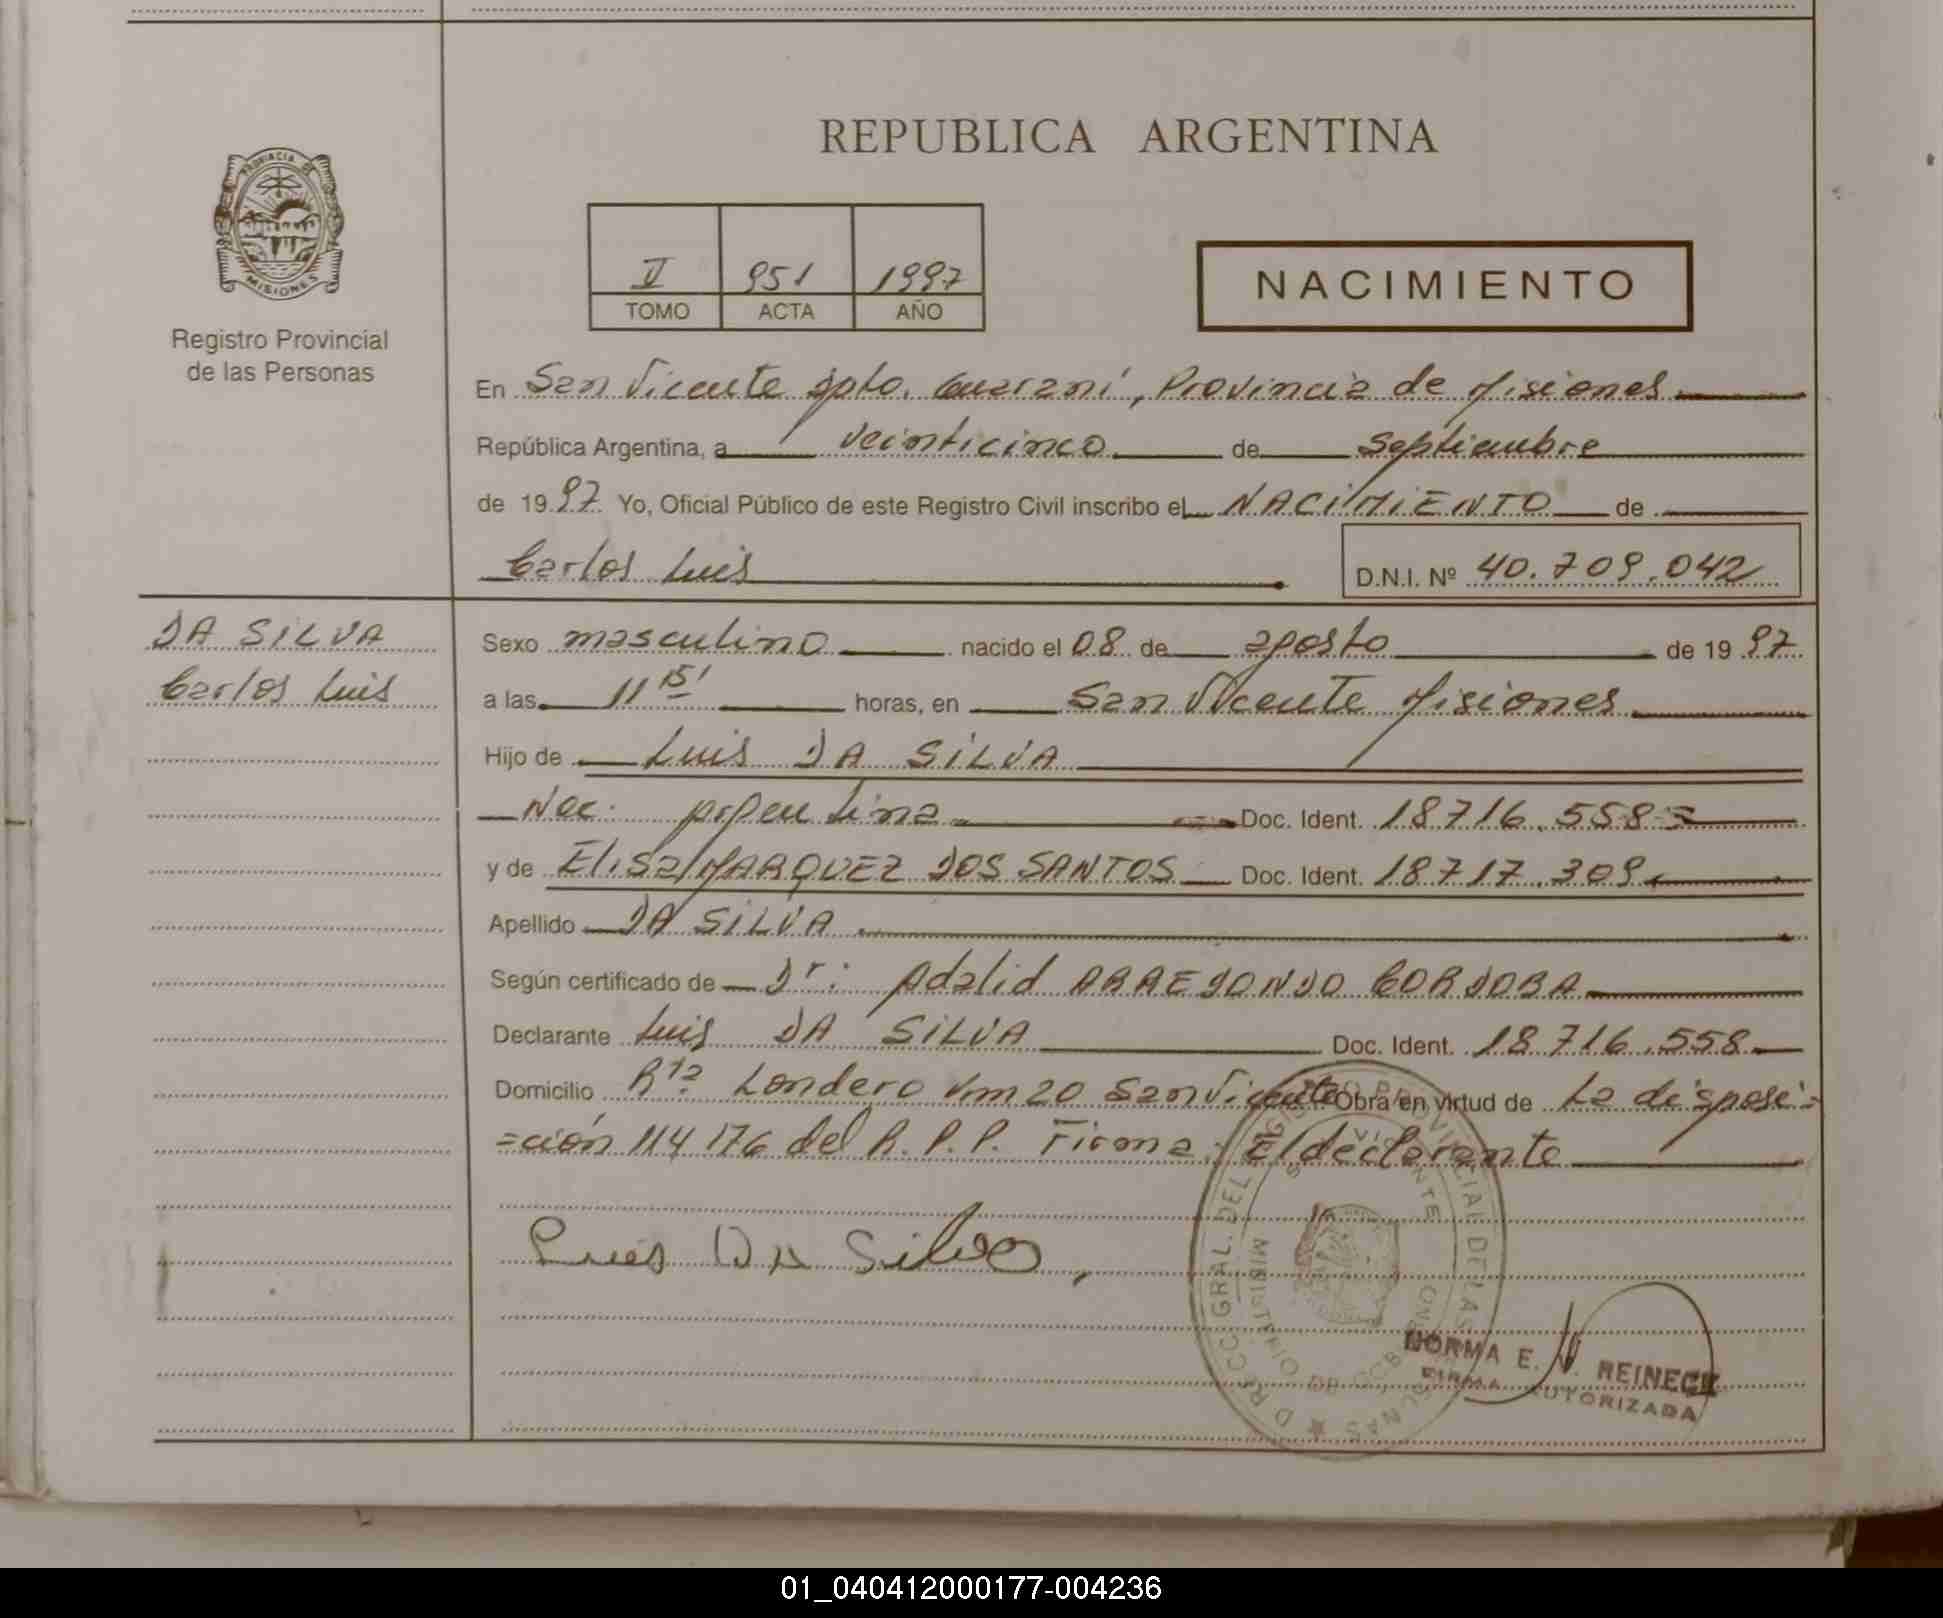 REPUBLICA ARGENTINA
PROVINCIA DE
MISIONES
Registro Provincial
de las Personas
V 951 1997
TOMO ACTA AÑO
NACIMIENTO
En San Vicente Dpto. Guaraní, Provincia de Misiones
República Argentina, a veinticinco de Septiembre
de 1997 Yo, Oficial Público de este Registro Civil inscribo el NACIMIENTO de
Carlos Luis D.N.I. Nº 40.709.042
DA SILVA
Carlos Luis
Sexo masculino nacido el 08 de agosto de 1997
a las 11 15' horas, en San Vicente Misiones
Hijo de Luis DA SILVA
Nac. Argentina Doc. Ident. 18716.558=
y de Elisa MARQUEZ DOS SANTOS Doc. Ident. 18717.309
Apellido DA SILVA
Según certificado de Dr: Adalid ARREDONDO CORDOBA
Declarante Luis DA SILVA Doc. Ident. 18716.558
Domicilio Rta Londero Km 20 San Vicente Obra en virtud de La disposi=
=ción 114 176 del R.P.P. Firma: El declarante
Luis DA Silva,
NORMA E. V. REINECK
FIRMA AUTORIZADA
01_040412000177-004236